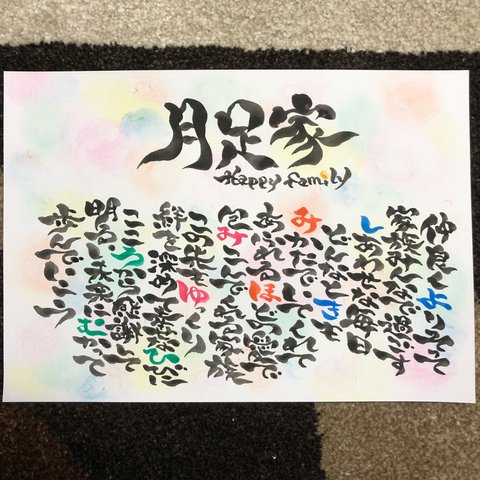 月足家
Happy family
仲良くよりそって
家族みんなで過ごす
しあわせな毎日
どんなときも
みかたでいてくれて
あふれるほどの愛で
包みこんでくれる家族
この先もゆっくり
絆を深め幸せなひびに
こころから感謝して
明るい未来にむかって
歩んでいこう